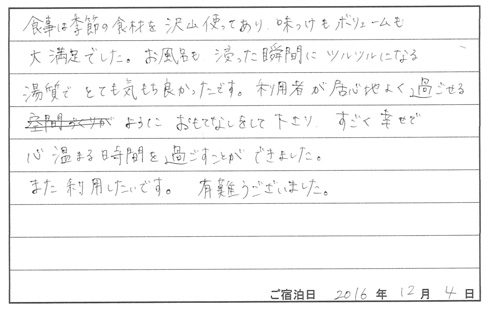 食事は季節の食材を沢山使ってあり、味つけもボリュームも
大満足でした。お風呂も浸った瞬間にツルツルになる
湯質でとても気もち良かったです。利用者が居心地よく過ごせる
ように おもてなしをして下さり、すごく幸せで
心温まる時間を過ごすことができました。
また利用したいです。 有難うございました。
ご宿泊日 2016 年 12 月 4 日